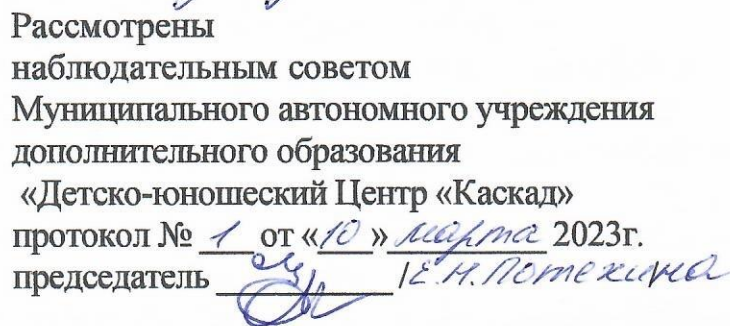 Рассмотрены
наблюдательным советом
Муниципального автономного учреждения
дополнительного образования
«Детско-юношеский Центр «Каскад»
протокол № 1 от «10» марта 2023г.
председатель ____________ /Е.Н.Потехина